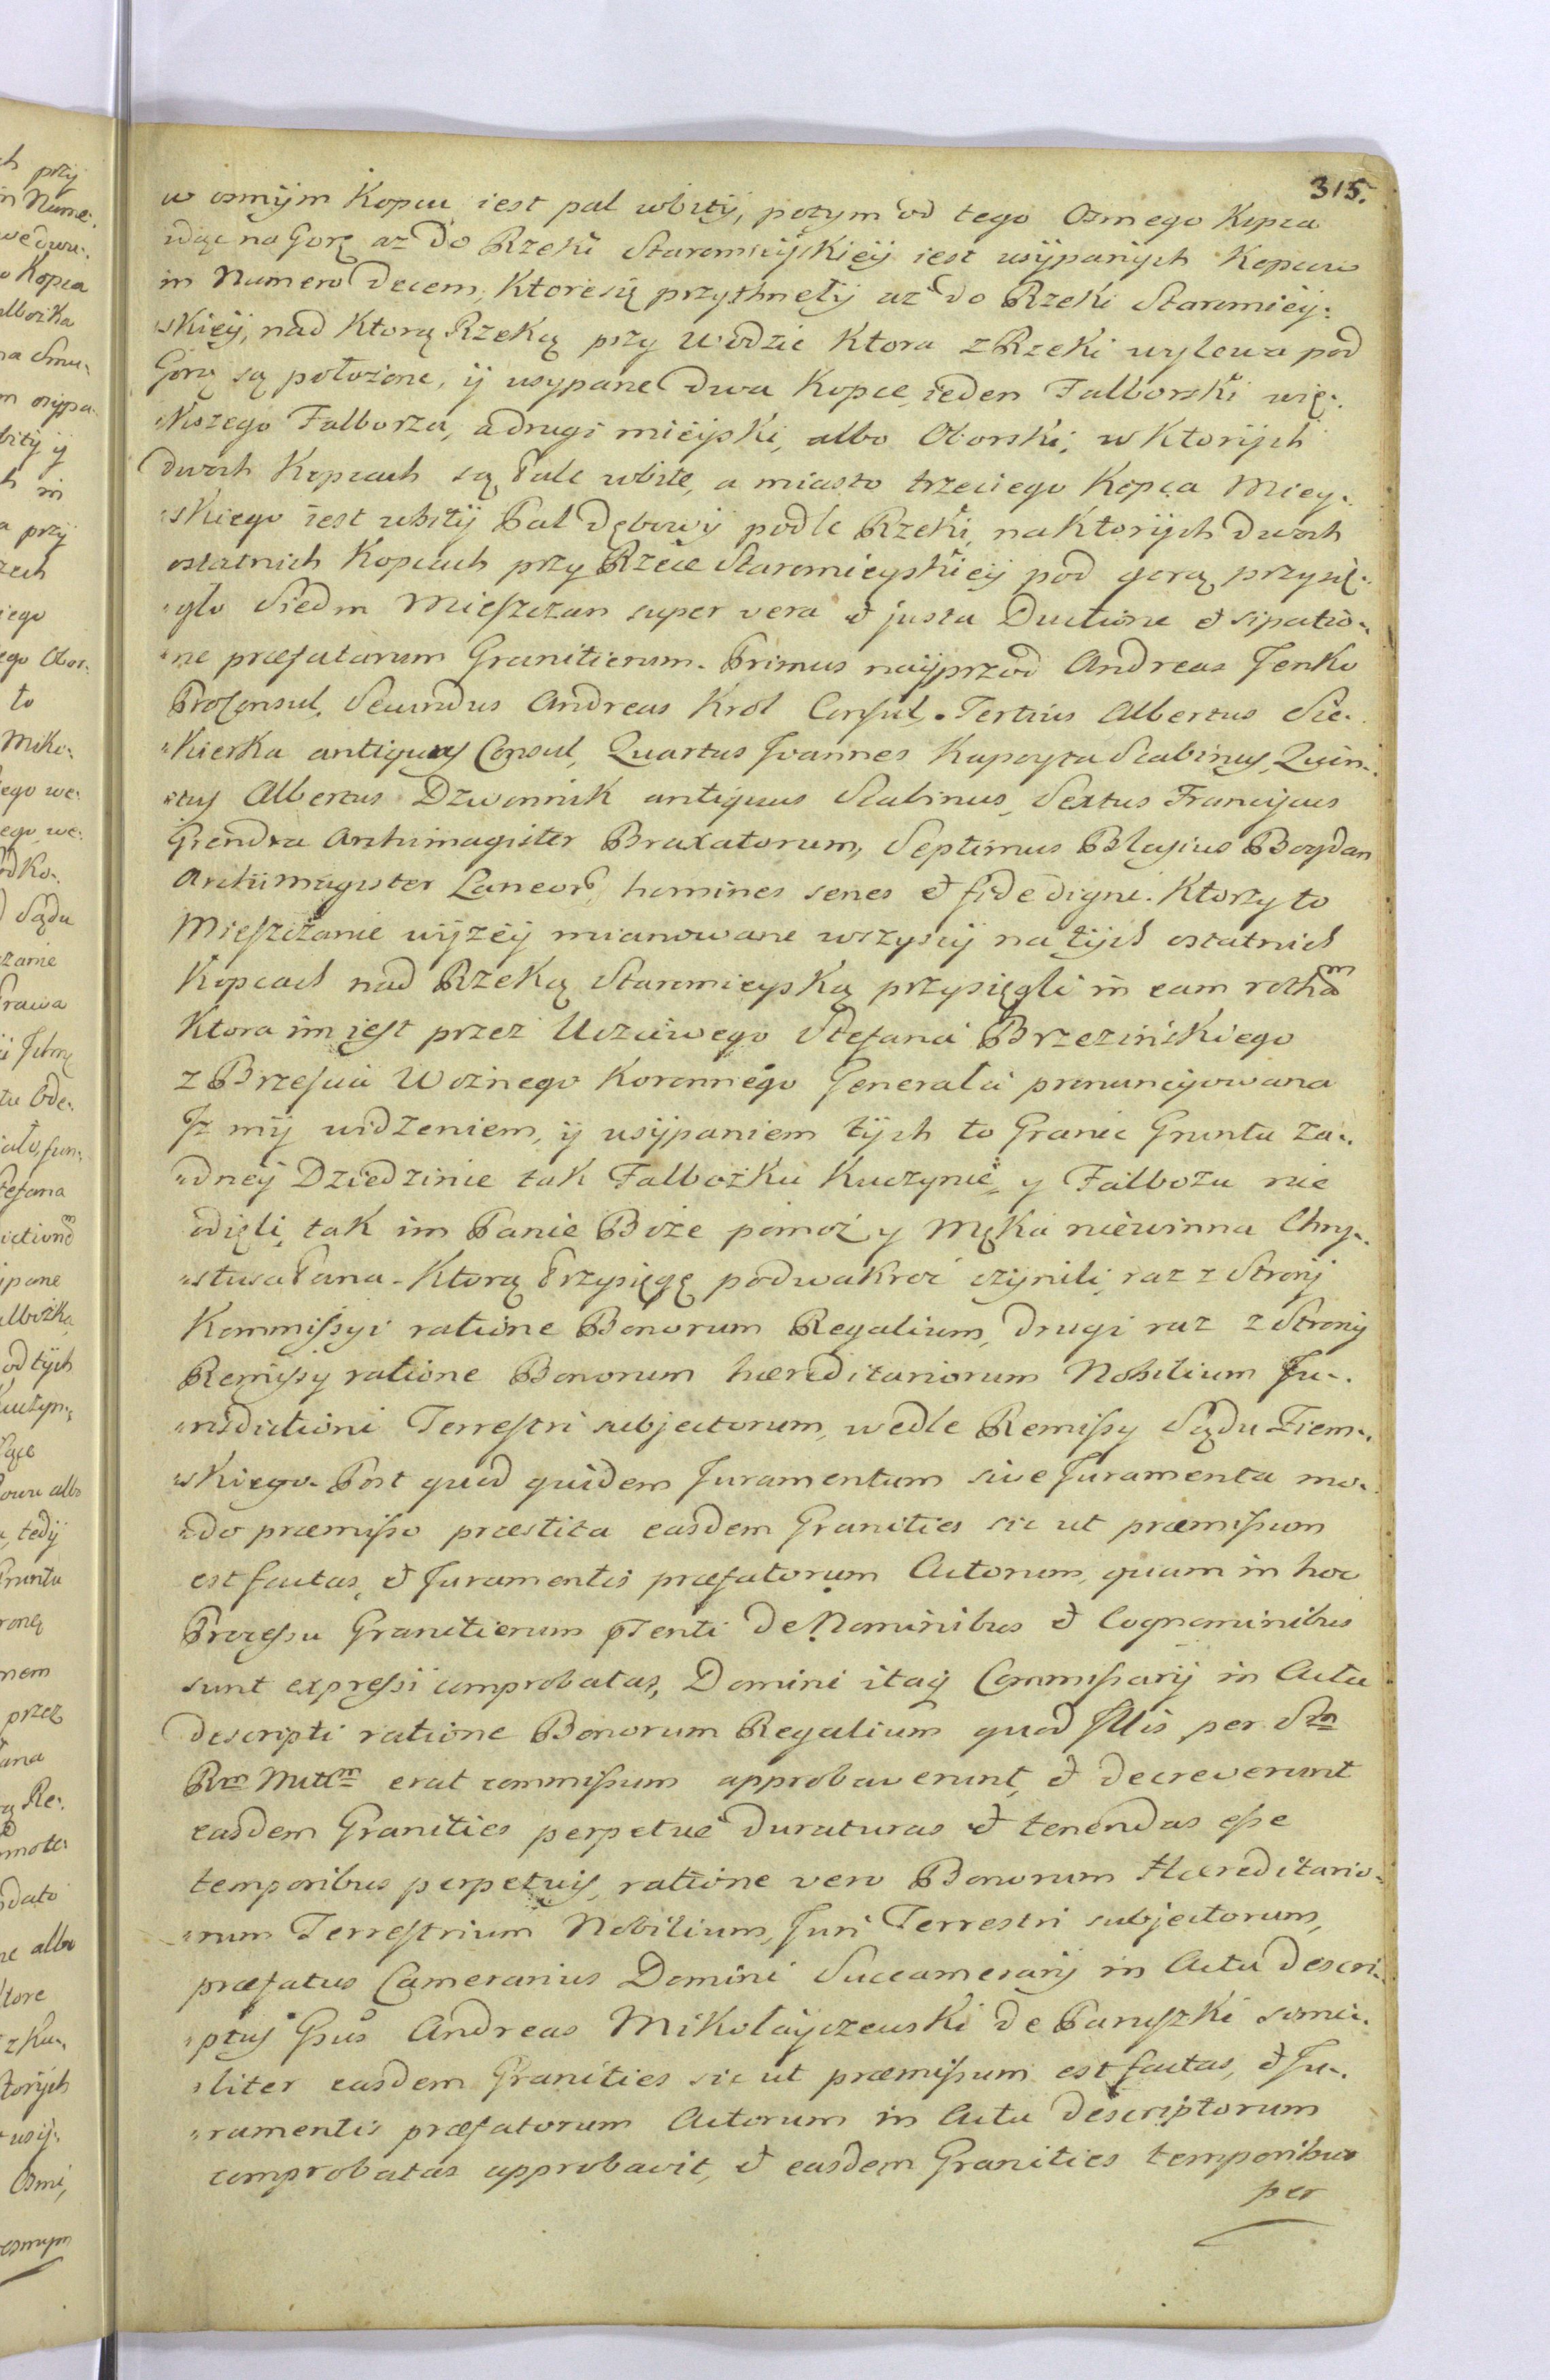 315.
w osmÿm Kopcu iest pal wbitÿ, potym od tego Osmego Kopca
idąc na Gorę az do Rzeki Staromieÿskieÿ iest usÿpanÿch Kopcow
in Numero decem, Ktore się przythnełÿ az do Rzeki Staromieÿ:
„skieÿ, nad Ktorą Rzeką przy Wodzie Ktora z Rzeki wylewa pod
Gorą są położone, ÿ usypane dwa Kopce, ieden Falborski wię:
„kszego Falborza, a drugi mieÿski, albo Oborski, w Ktorÿch
dwoch Kopcach są Pale wbite, a miasto trzeciego Kopca Miey:
„skiego iest wbitÿ Pal dębowÿ podle Rzeki, na Ktorÿch dwoch
ostatnich Kopcach przy Rzece Staromieyskieÿ pod gorą przysię:
„gło Siedm Mieszczan super vera et justa Ductione et sipatio„
„ne præfatarum Granitierum. Primus naÿprzod Andreas Jenko
ProConsul, Secundus Andreas Krol Consul, Tertius Albertus Sie:
„kierka antiquus Consul, Quartus Joannes Kapoyta Scabinus, Quin:
„tus Albertus Dzwonnik antiquus Scabinus, Sextus Franciscus
Giendra Archimagister Braxatorum, Septimus Blasius Bogdan
Archimagister Laneor', homines senes et fide digni. Ktorzy to
Mieszczanie wÿzeÿ mianowane wszyscÿ na tÿch ostatnich
Kopcach nad Rzeką Staromieyską przysięgli in eam rotham
Ktora im iest przez Uczciwego Stefana Brzezińskiego
z Brzescia Woznego Koronnego Generała pronuncÿowana
Jz mÿ widzeniem, ÿ usÿpaniem tÿch to Granic Gruntu Za:
„dneÿ Dziedzinie tak Falbożku Kuczynie, y Falbożu nie
odięli, tak im Panie Boże pomoż y Męka niewinna Chry:
„stusa Pana. Ktorą Przysięgę podwakroć czÿnili, raz z Stronÿ
Kommissyi ratione Bonorum Regalium, drugi raz z Stronÿ
Remissy ratione Bonorum hæreditariorum Nobilium Ju:
„risdictioni Terrestri subjectorum, wedle Remissy Sądu Ziem:
„skiego. Post quod quidem Juramentum sive Juramenta mo:
„do præmisso præstita easdem Granities sic ut præmissum
est factas, et Juramentis præfatorum Actorum, quam in hoc
Processu Granitierum pTenti de Nominibus et Cognominibus
sunt expressi comprobatas, Domini itaq Commissarÿ in Actu
descripti ratione Bonorum Regalium quod Illis per Srm
Rm Mttm erat commissum approbaverunt, et decreverunt
easdem Granities perpetue duraturas et tenendas esse
temporibus perpetuis, ratione vero Bonorum Hæreditario:
„rum Terrestrium Nobilium, Juri Terrestri subjectorum,
præfatus Camerarius Domini Succamerarÿ in Actu descri:
„ptus Gsus Andreas Mikołaÿczewski de Paruszki simi:
„liter easdem Granities sic ut præmissum est factas, et Ju:
„ramentis præfatorum Actorum in Actu descriptorum
comprobatas approbavit, et easdem Granities temporibus
per